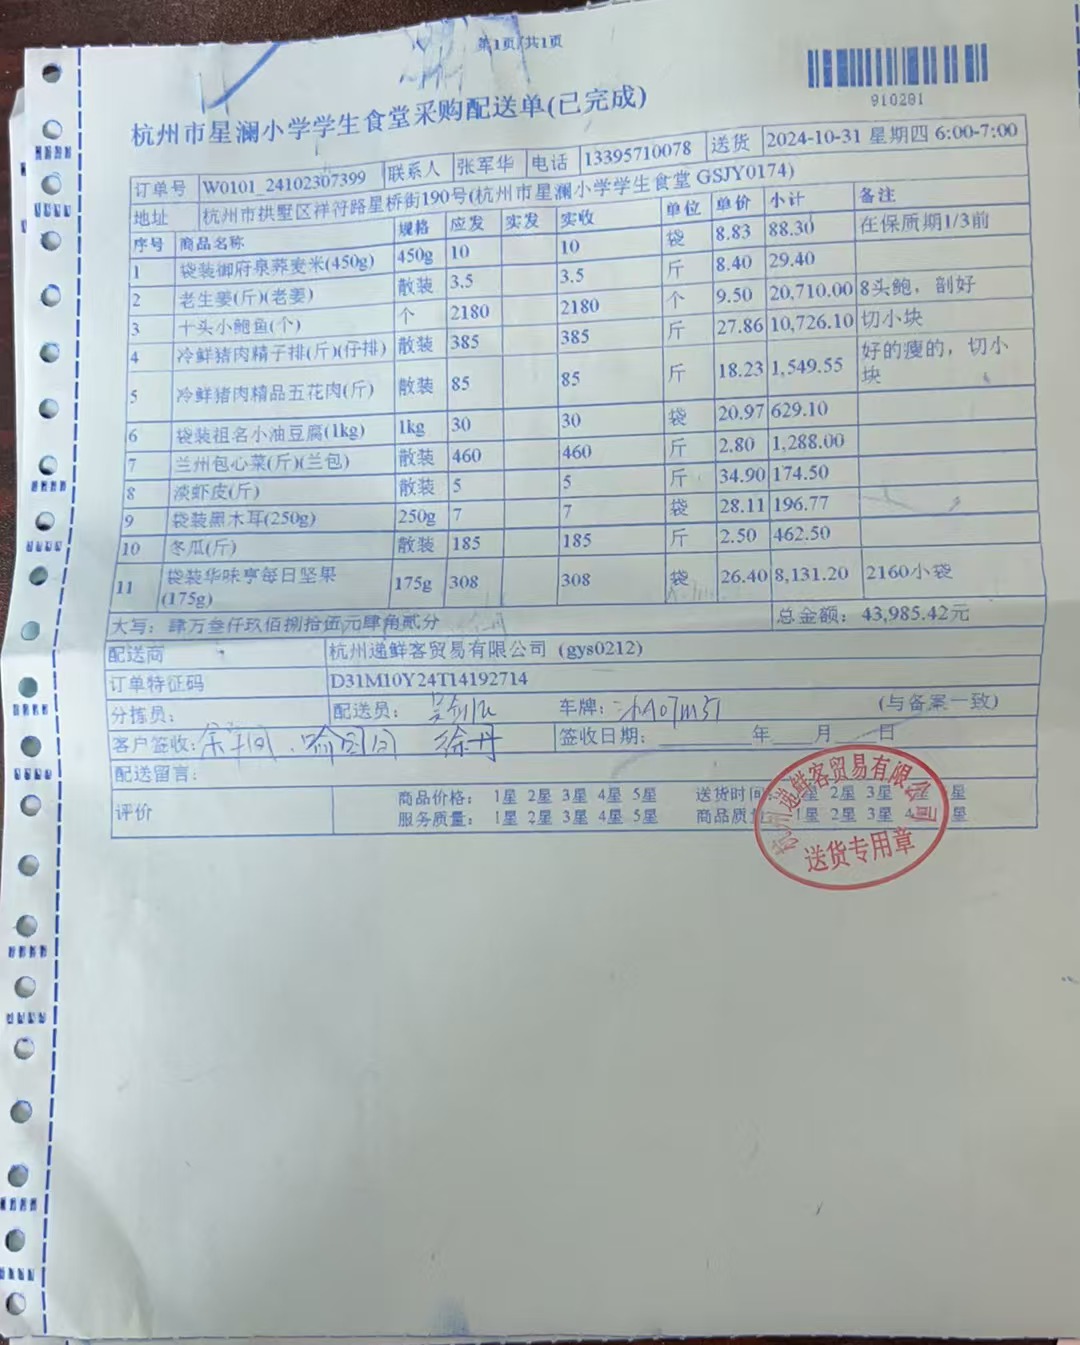 第1页/共1页
910281
杭州市星澜小学学生食堂采购配送单(已完成)
订单号 W0101_24102307399 联系人 张军华 电话 13395710078 送货 2024-10-31 星期四 6:00-7:00
地址 杭州市拱墅区祥符路星桥街190号(杭州市星澜小学学生食堂 GSJY0174)
序号 商品名称 规格 应发 实发 实收 单位 单价 小计 备注
1 袋装御府泉荞麦米(450g) 450g 10 10 袋 8.83 88.30 在保质期1/3前
2 老生姜(斤)(老姜) 散装 3.5 3.5 斤 8.40 29.40
3 十头小鲍鱼(个) 个 2180 2180 个 9.50 20,710.00 8头鲍，剖好
4 冷鲜猪肉精子排(斤)(仔排) 散装 385 385 斤 27.86 10,726.10 切小块
5 冷鲜猪肉精品五花肉(斤) 散装 85 85 斤 18.23 1,549.55 好的瘦的，切小块
6 袋装祖名小油豆腐(1kg) 1kg 30 30 袋 20.97 629.10
7 兰州包心菜(斤)(兰包) 散装 460 460 斤 2.80 1,288.00
8 淡虾皮(斤) 散装 5 5 斤 34.90 174.50
9 袋装黑木耳(250g) 250g 7 7 袋 28.11 196.77
10 冬瓜(斤) 散装 185 185 斤 2.50 462.50
11 袋装华味亨每日坚果(175g) 175g 308 308 袋 26.40 8,131.20 2160小袋
大写：肆万叁仟玖佰捌拾伍元肆角贰分 总金额：43,985.42元
配送商 杭州递鲜客贸易有限公司（gys0212）
订单特征码 D31M10Y24T14192714
分拣员： 配送员： 车牌： (与备案一致)
客户签收： 徐丹 签收日期： 年 月 日
配送留言：
评价 商品价格： 1星 2星 3星 4星 5星 送货时间： 1星 2星 3星 星 星
服务质量： 1星 2星 3星 4星 5星 商品质量 1星 2星 3星 4 星
杭州递鲜客贸易有限公司
送货专用章